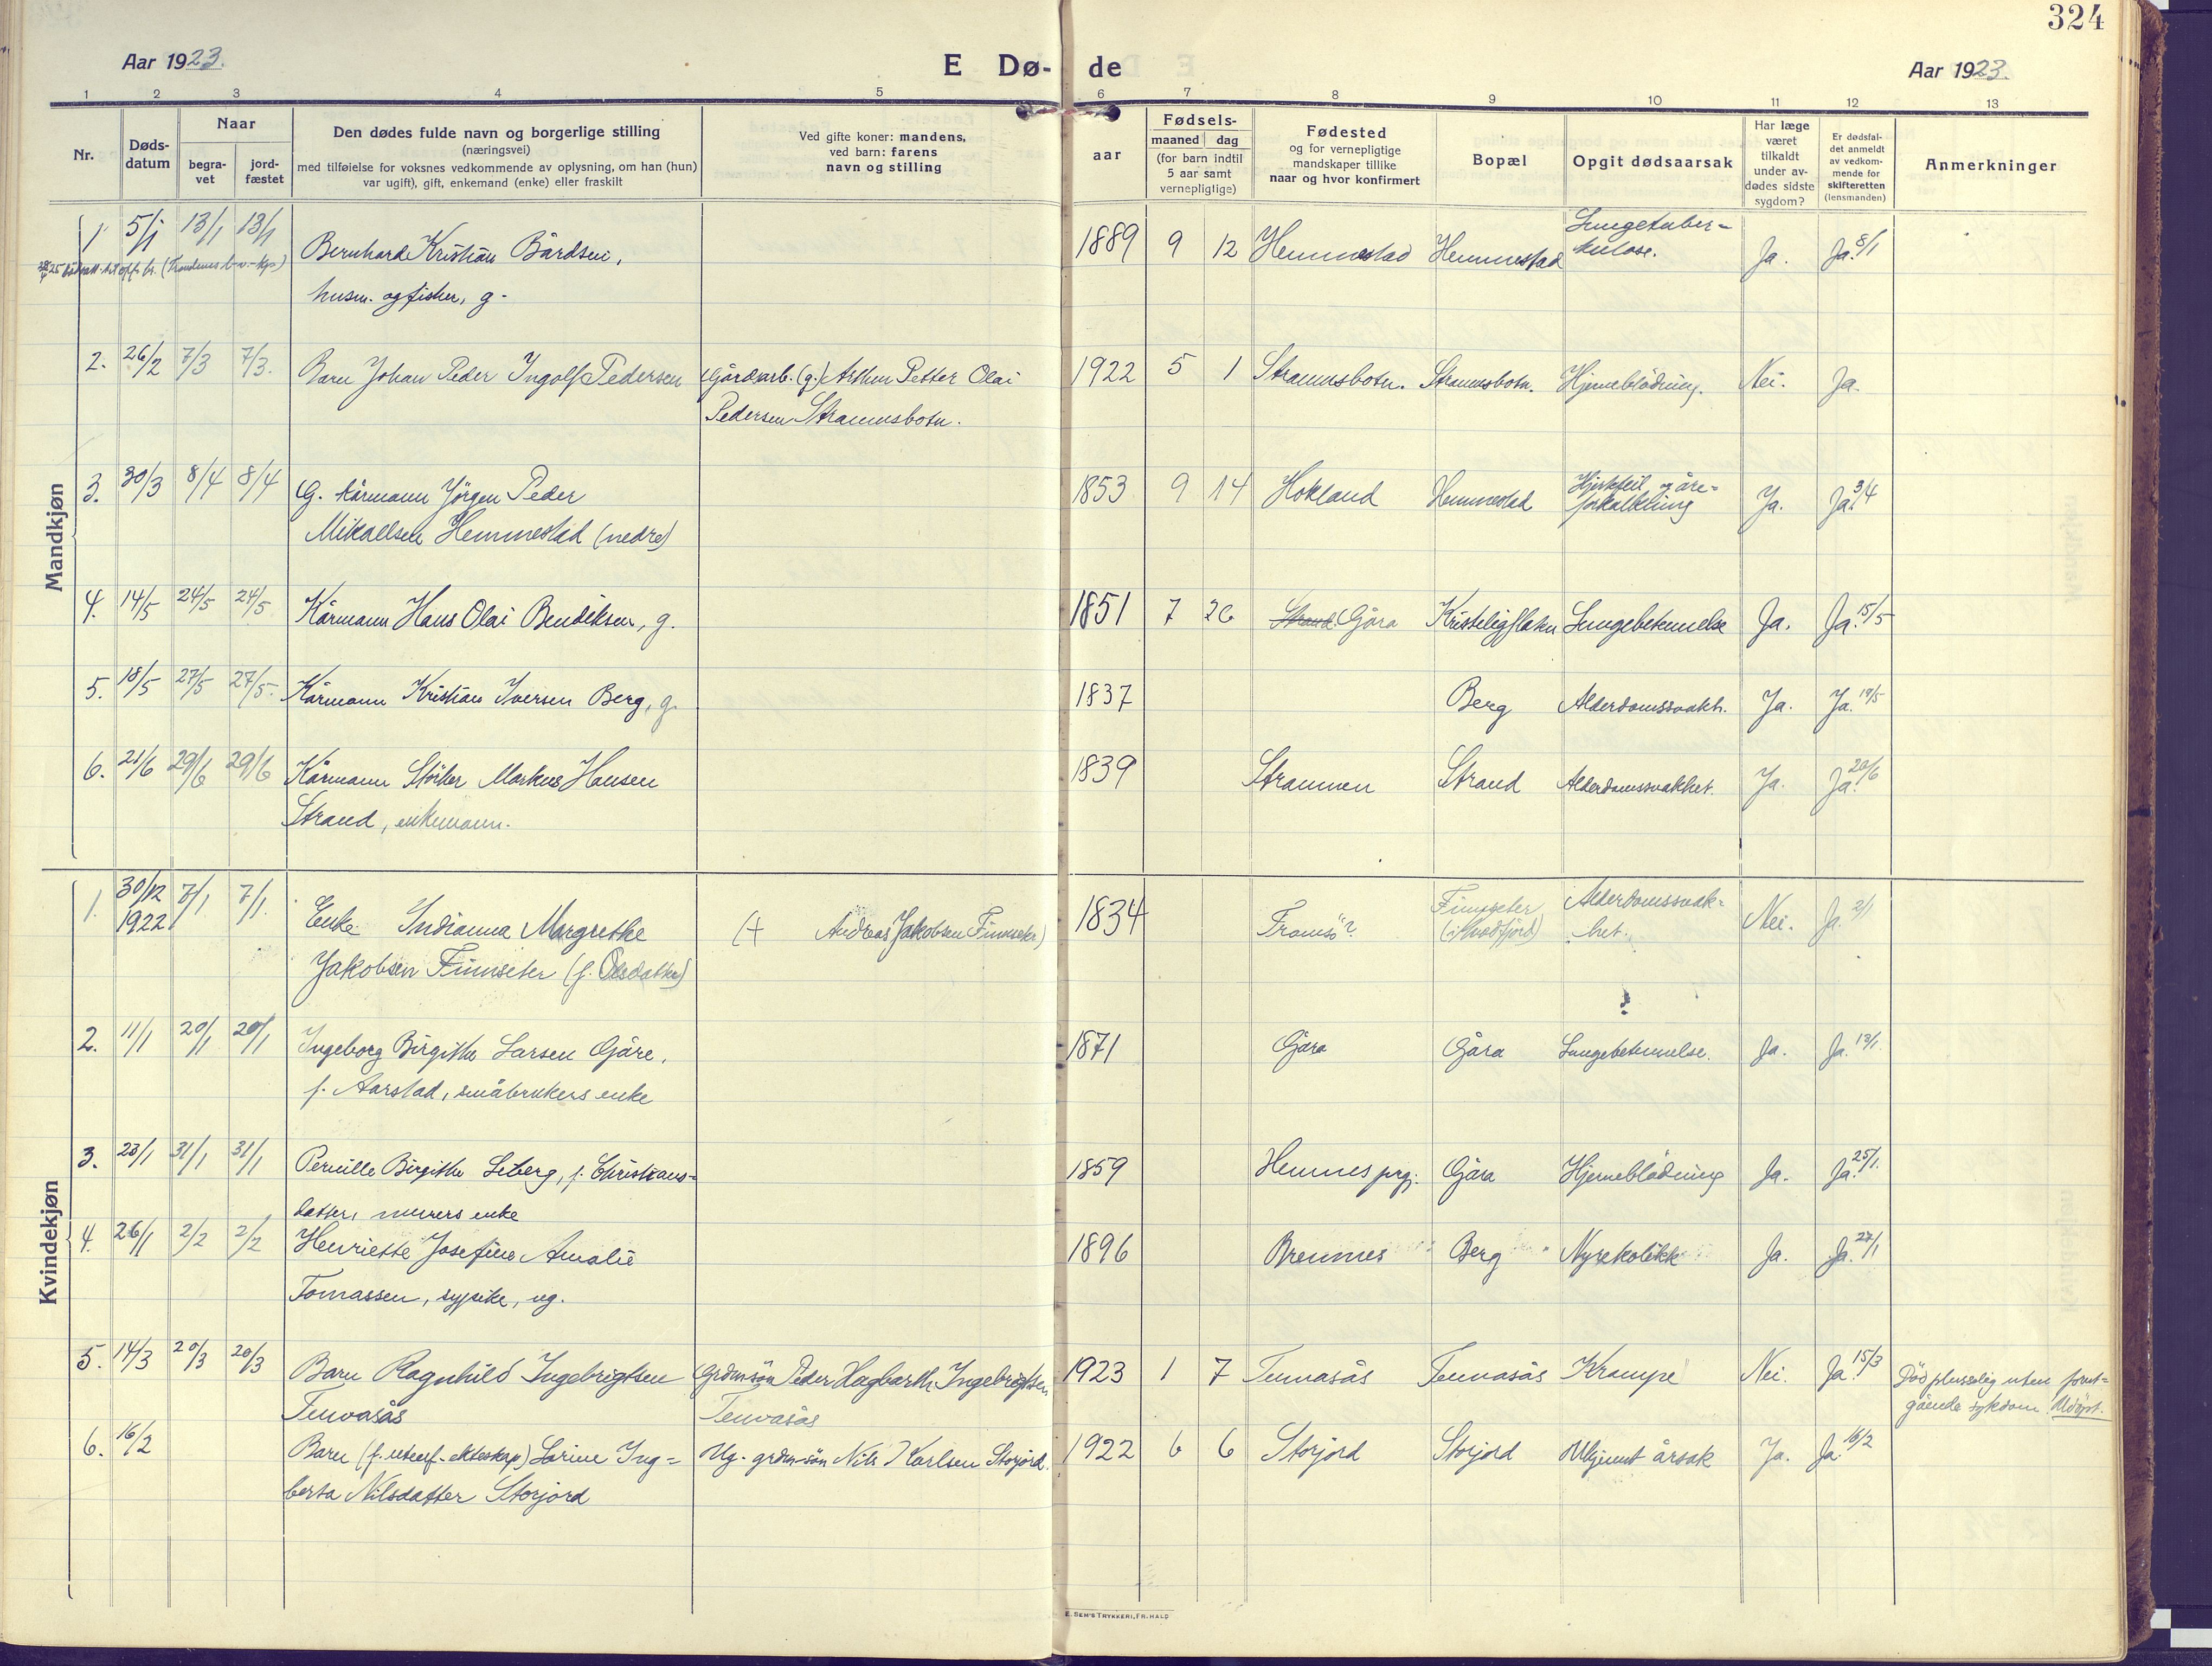 324
Aar 1923.
E Dø- de
Aar 1923.
1 2 3 4 5 6 7 8 9 10 11 12 13
Nr.
Døds-
datum
Naar
begra-
vet
jord-
fæstet
Den dødes fulde navn og borgerlige stilling
(næringsvei)
med tilføielse for voksnes vedkommende av oplysning, om han (hun)
var ugift), gift, enkemand (enke) eller fraskilt
Ved gifte koner: mandens,
ved barn: farens
navn og stilling
aar
Fødsels-
maaned dag
(for barn indtil
5 aar samt
vernepligtige)
Fødested
og for vernepligtige
mandskaper tillike
naar og hvor konfirmert
Bopæl
Opgit dødsaarsak
Har læge
været
tilkaldt
under av-
dødes sidste
sygdom?
Er dødsfal-
det anmeldt
av vedkom-
mende for
skifteretten
(lensmanden)
Anmerkninger
Mandkjøn
1 5/1 13/1 13/1 Bernhard Kristian Bårdsen, 1889 9 12 Hemmestad Hemmestad Lungetuber-
kulose. Ja. Ja. 8/1
husm. og fisker, g.
2. 26/2 7/3 7/3. Barn Johan Peder Ingolf Pedersen Gårdarb. (g.) Arthur Petter Olai 1922 5 1 Straumsbotn. Straumsbotn. Hjerneblödning. Nei. Ja.
Pedersen Straumsbotn.
3. 30/3 8/4 8/4 G. kårmann Jörgen Peder 1853 9 14 Hokland Hemmestad Hjertefeil og åre-
forkalkning Ja. Ja. 3/4
Mikaelsen Hemmestad (nedre)
4. 14/5 24/5 24/5 Kårmann Hans Olai Bendiksen, g. 1851 7 26 Strand. Gåra Lungebetennelse Ja. Ja. 15/5
5. 18/5 27/5 27/5. Kårmann Kristian Iversen Berg, g. 1837 Berg Alderdomssvakh. Ja. Ja. 19/5
6. 21/6 29/6 29/6 Kårmann Markus Hansen 1839 Straumen Strand Alderdomssvakhet. Ja. Ja.
Strand, enkemann.
Kvindekjøn
1. 30/12
1922 7/1 7/1. Enke Indianna Margrethe (+ Andreas Jakobsen Finnseter) 1834 Tromsö? Finnseter Alderdomssvak-
het. Nei. Ja. 2/1
Jakobsen Finnseter (f. Olsdatter)
2. 11/1 20/1 20/1 Ingeborg Birgithe Larsen Gåre, 1871 Gåra Gåra Lungebetennelse. Ja. Ja. 13/1.
f. Aarstad, småbrukers enke
3. 23/1 31/1 31/1 Pernille Birgithe Leberg, f. Christians- 1859 Hemnes prgj. Gåra Hjerneblödning Ja. Ja. 25/1.
datter, murers enke
4. 26/1 2/2 2/2 Henriette Josefine Amalie 1896 Bremnes Berg Nyrekolikk Ja. Ja. 27/1
Tomassen, sypike, ug.
5. 14/3 20/3 20/3 Barn Ragnhild Ingebrigtsen Grdmsön Peder Hagbarth Ingebrigtsen 1923 1 7 Tennasås Tennasås Krampe Nei. Ja. 15/3 Död plusselig uten forut-
gående sykdom. Udöpt.
Tennasås Tennasås
6. 16/2 Barn (f. utenf. ekteskap) Larine Ing- Ug. grdm-sön Nils Karlsen Storjord. 1922 6 6 Storjord Storjord Ukjent årsak Ja. Ja. 16/2
berta Nilsdatter Storjord
E. SEM'S TRYKKERI, FR. HALD